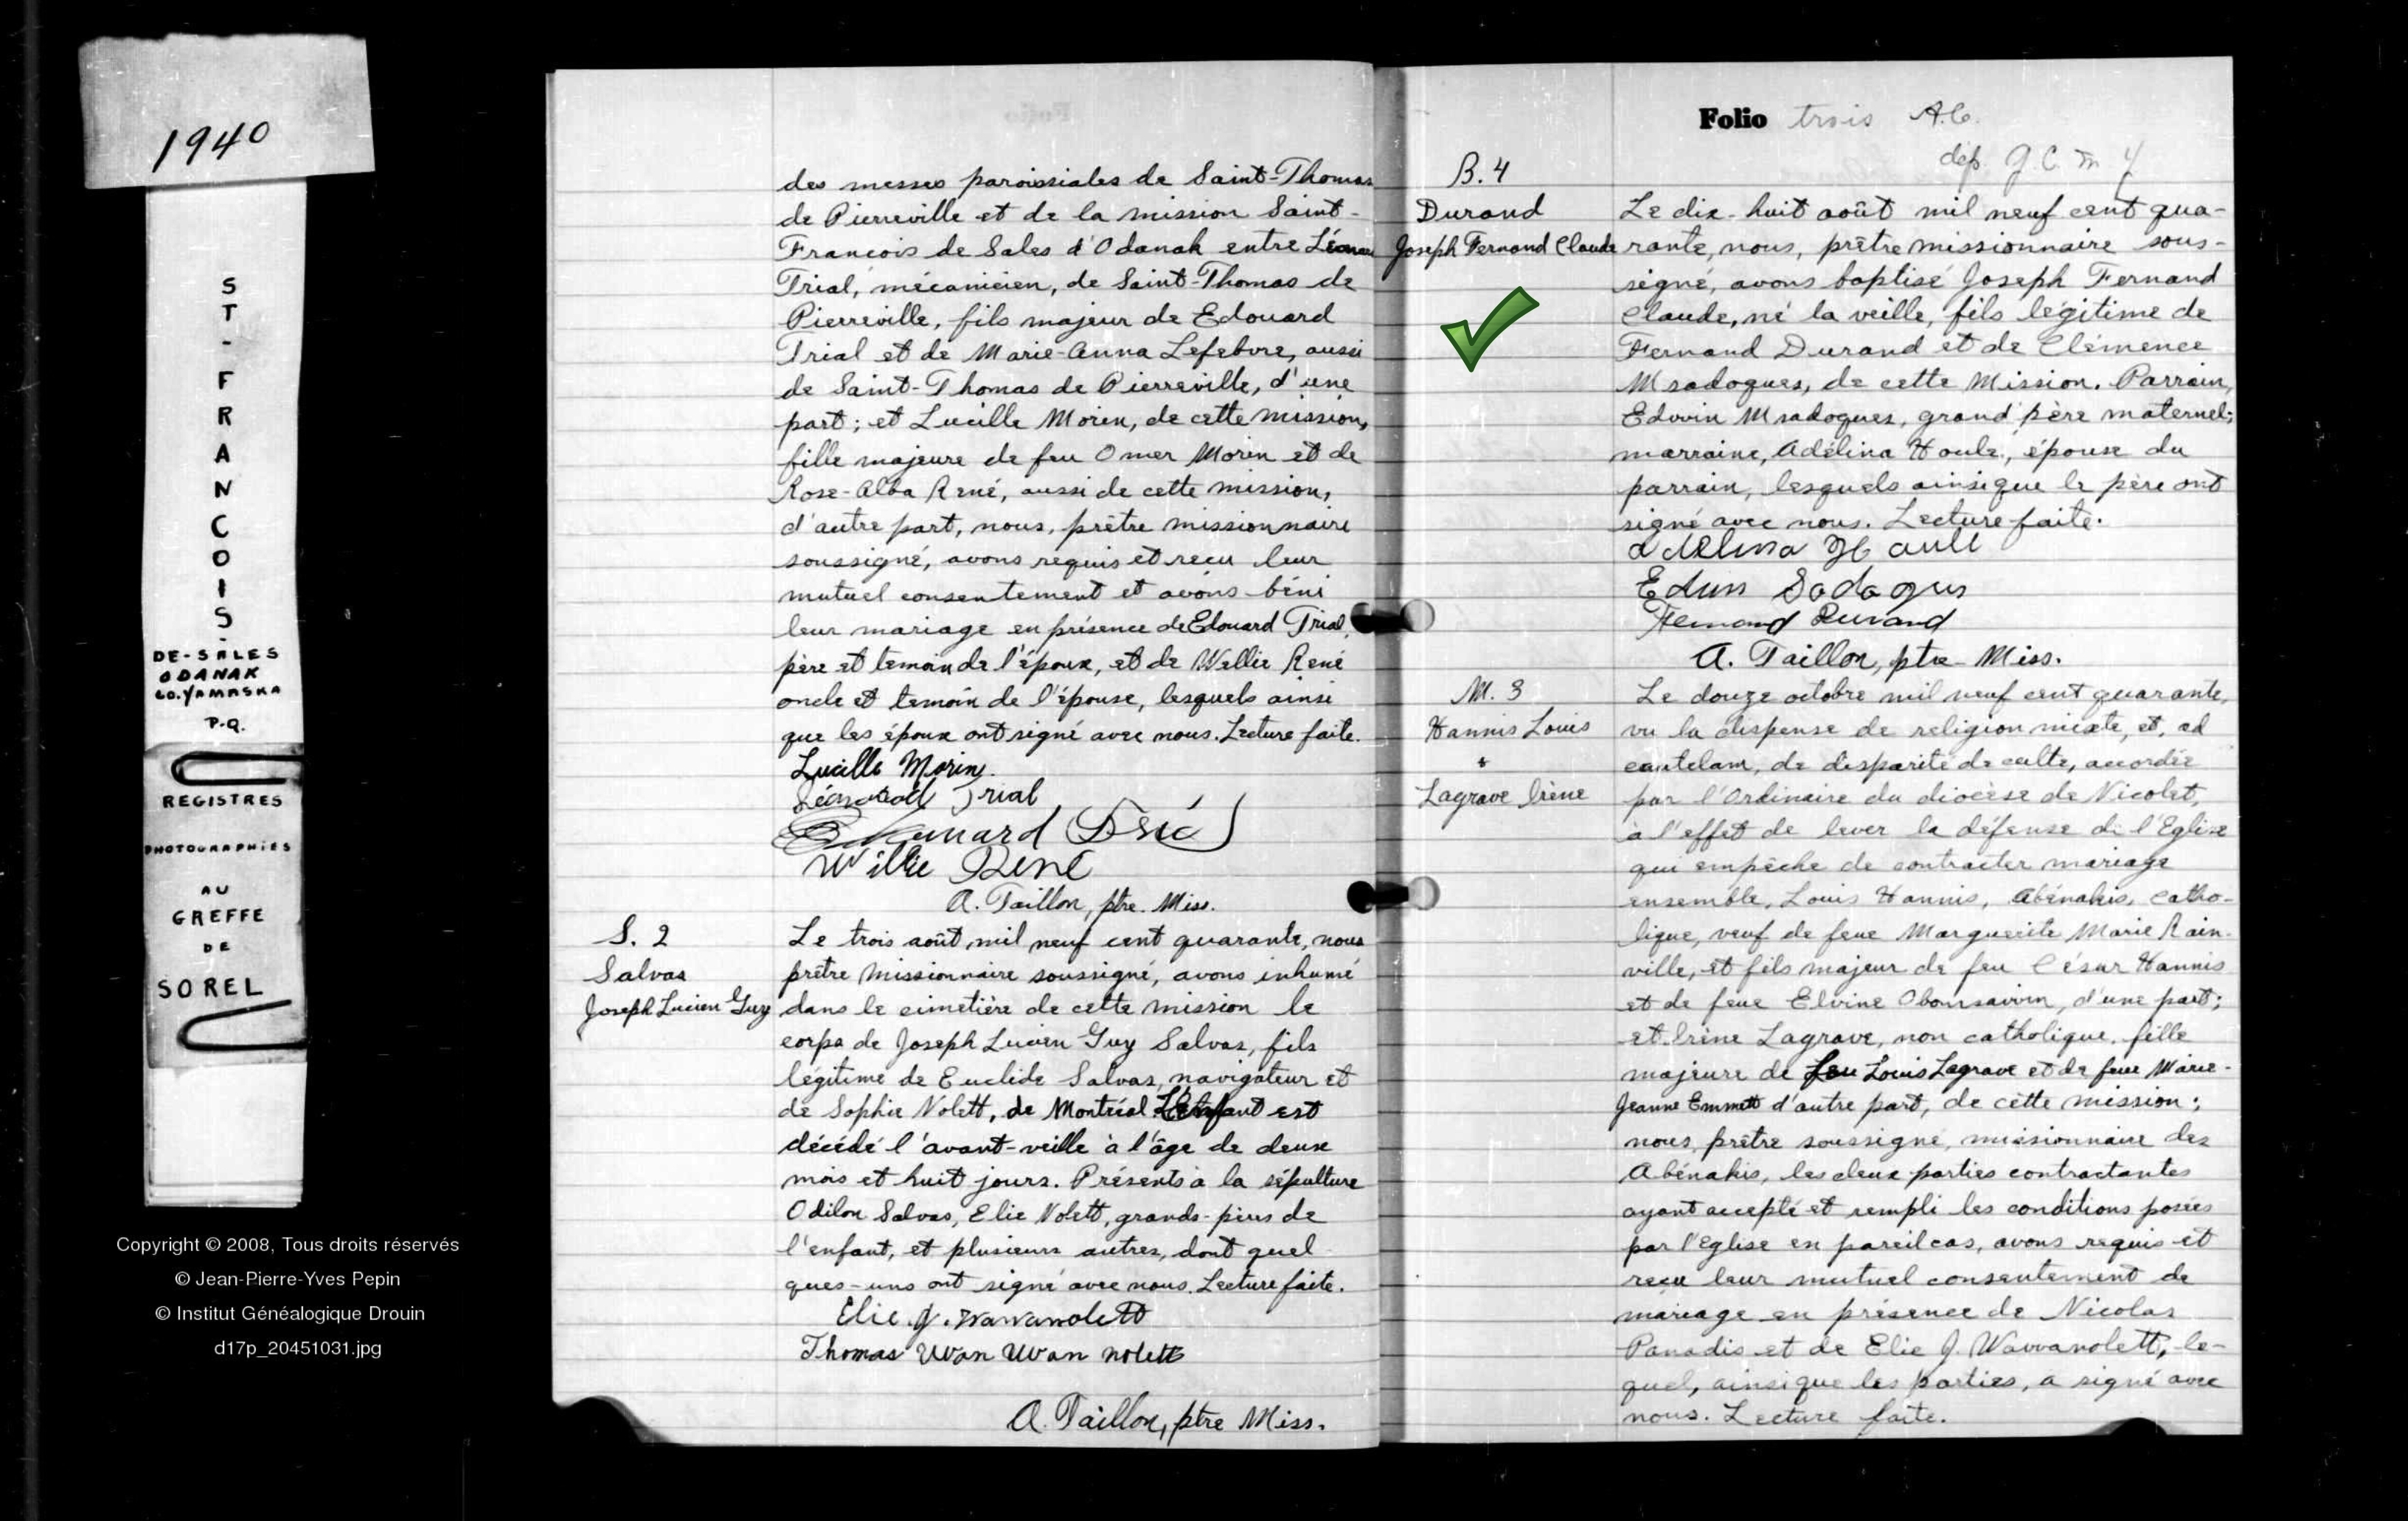 1940
ST-FRANCOIS-
DE-SALES
ODANAK
CO. YAMASKA
P.Q.
REGISTRES
PHOTOGRAPHIÉS
AU
GREFFE
DE
SOREL
Copyright © 2008, Tous droits réservés
© Jean-Pierre-Yves Pepin
© Institut Généalogique Drouin
d17p_20451031.jpg
des messes paroissiales de Saint-Thomas
de Pierreville et de la mission Saint-
François de Sales d'Odanak entre Léonard
Trial, mécanicien, de Saint-Thomas de
Pierreville, fils majeur de Edouard
Trial et de Marie-Anna Lefebvre, aussi
de Saint-Thomas de Pierreville, d'une
part; et Lucille Morin, de cette mission,
fille majeure de feu Omer Morin et de
Rose-Alba René, aussi de cette mission,
d'autre part, nous, prêtre missionnaire
soussigné, avons requis et reçu leur
mutuel consentement et avons béni
leur mariage en présence de Edouard Trial,
père et temoin de l'époux, et de Wellie René
oncle et temoin de l'épouse, lesquels ainsi
que les époux ont signé avec nous. Lecture faite.
Lucille Morin.
Léonard Trial
Willie René
A. Taillon, ptre. Miss.
S. 2
Salvas
Joseph Lucien Guy
Le trois août mil neuf cent quarante, nous
prêtre missionnaire soussigné, avons inhumé
dans le cimetière de cette mission le
corps de Joseph Lucien Guy Salvas, fils
légitime de Euclide Salvas, navigateur et
de Sophie Nolett, de Montréal. L'Enfant est
décédé l'avant-veille à l'âge de deux
mois et huit jours. Présents à la sépulture
Odilon Salvas, Elie Nolett, grands-pères de
l'enfant, et plusieurs autres, dont quel
ques-uns ont signé avec nous. Lecture faite.
Elie. J. Wawanolett
Thomas Wan Wan nolett
A. Taillon, ptre Miss.
Folio trois A.C.
dép. G.C.M.Y
B. 4
Durand
Joseph Fernand Claude
Le dix-huit août mil neuf cent qua-
rante, nous, prêtre missionnaire sous-
signé, avons baptisé Joseph Fernand
Claude, né la veille, fils légitime de
Fernand Durand et de Clémence
Msadoques, de cette Mission. Parrain,
Edwin Msadoques, grand'père maternel;
marraine, Adélina Houle, épouse du
parrain, lesquels ainsi que le père ont
signé avec nous. Lecture faite.
Adelina Houle
Edwin Sadoques
Fernand Durand
A. Taillon, ptre-Miss.
M. 3
Hannis Louis
&
Lagrave Irène
Le douze octobre mil neuf cent quarante,
vu la dispense de religion mixte, et, ad
cautelam, de disparité de culte, accordée
par l'Ordinaire du diocèse de Nicolet,
à l'effet de lever la défense de l'Eglise
qui empêche de contracter mariage
ensemble, Louis Hannis, Abénakis, catho-
lique, veuf de feue Marguerite Marie Rain-
ville, et fils majeur de feu César Hannis
et de feue Elvine Obomsawin, d'une part;
et Irène Lagrave, non catholique, fille
majeure de feu Louis Lagrave et de feue Marie-
Jeanne Emmett d'autre part, de cette mission;
nous, prêtre soussigné, missionnaire des
Abénakis, les deux parties contractantes
ayant accepté et rempli les conditions posées
par l'eglise en pareil cas, avons requis et
reçu leur mutuel consentement de
mariage en présence de Nicolas
Panadis et de Elie J. Wawanolett, le-
quel, ainsi que les parties, a signé avec
nous. Lecture faite.